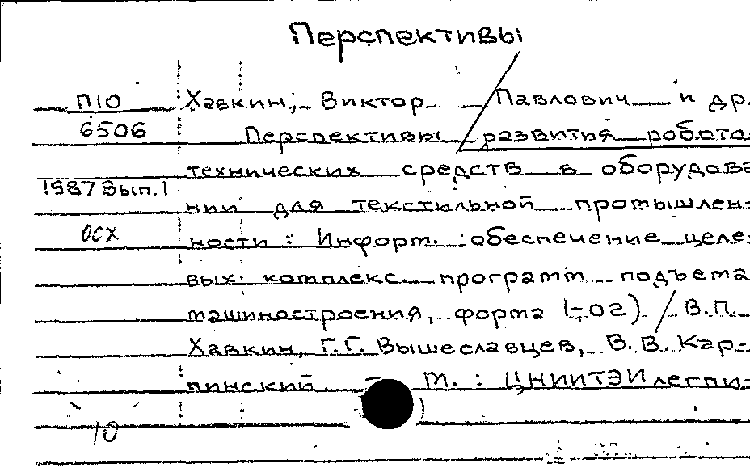 Перспективы
П10 Хавкин, Виктор Павлович и др.
6506 Перспективы развития робота-
технических средств в оборудова-
1987 Вып.1
нии для текстильной промышлен-
ОСХ ности : Информ. обеспечение целе-
вых комплекс. программ подъема
машиностроения, форма (-ог) / В.П.
Хавкин, Г.Г. Вышеславцев, В.В. Кар-
пинский. - М. : ЦНИИТЭИлегпи-
10